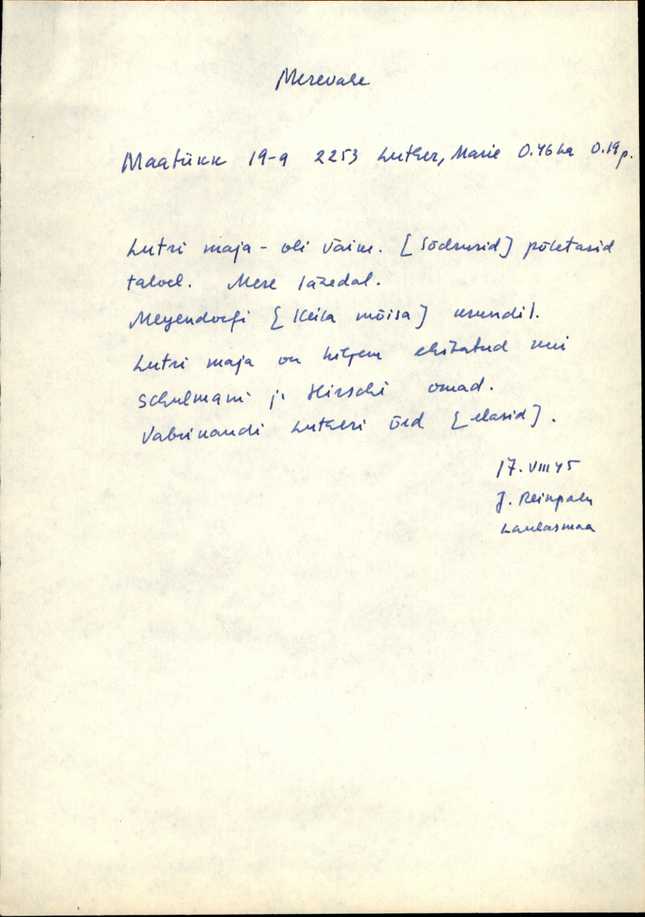 Merevahe
Maatükk 19-a 2253 Luther, Marie 0.46 ha 0.19 p.
Lutri maja - oli väim. [Sõdurid] põletasid
talvel. Mere läzedal.
Meyendorfi [Keila mõisa] urendil.
Lutri maja on hiljem ehitatud kui
Schulmani ja Hirschi omad.
Vabrikandi Lutheri õed [elasid].
17. VIII 45
J. Reinpalu
Laulasmaa